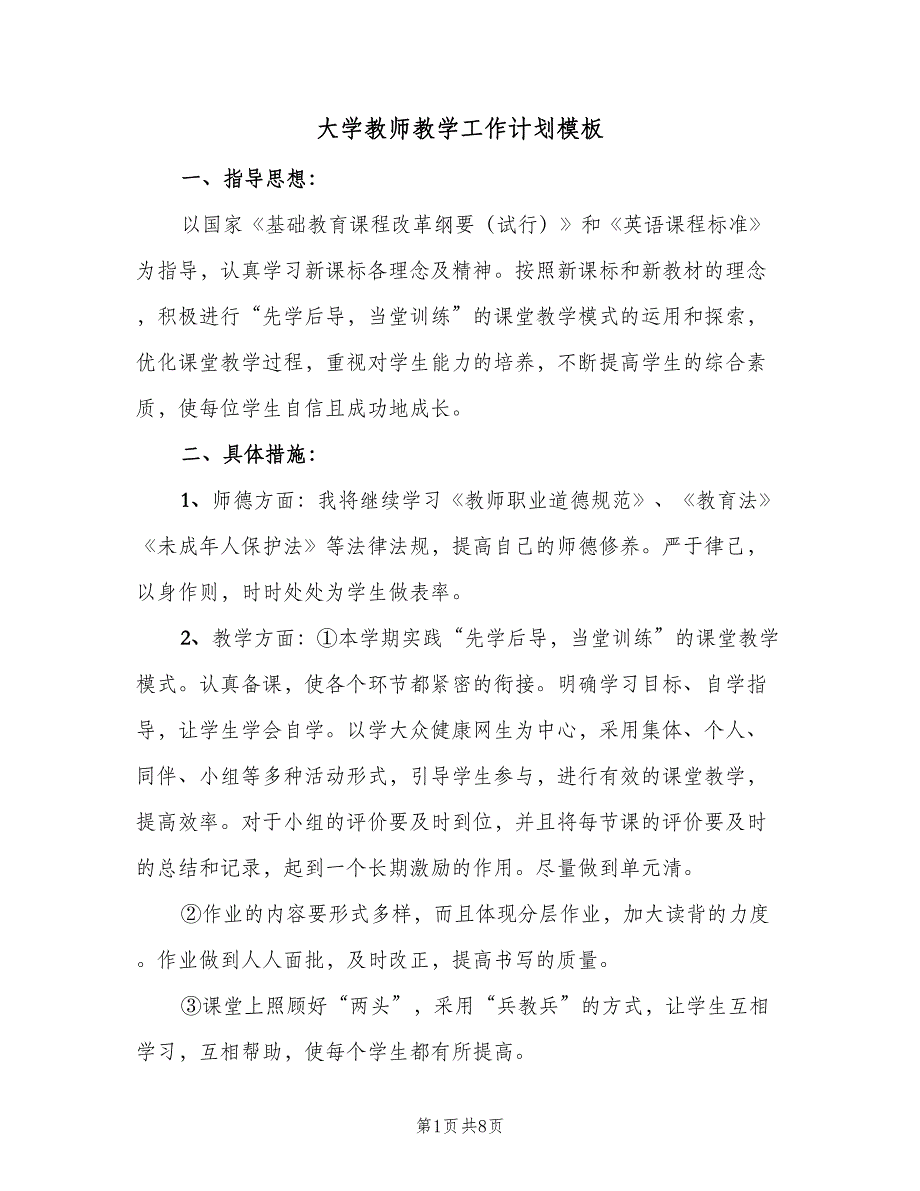 大学教师教学工作计划模板
一、指导思想：
以国家《基础教育课程改革纲要（试行）》和《英语课程标准》
为指导，认真学习新课标各理念及精神。按照新课标和新教材的理念
，积极进行“先学后导，当堂训练”的课堂教学模式的运用和探索，
优化课堂教学过程，重视对学生能力的培养，不断提高学生的综合素
质，使每位学生自信且成功地成长。
二、具体措施：
1、师德方面：我将继续学习《教师职业道德规范》、《教育法》
《未成年人保护法》等法律法规，提高自己的师德修养。严于律己，
以身作则，时时处处为学生做表率。
2、教学方面：①本学期实践“先学后导，当堂训练”的课堂教学
模式。认真备课，使各个环节都紧密的衔接。明确学习目标、自学指
导，让学生学会自学。以学大众健康网生为中心，采用集体、个人、
同伴、小组等多种活动形式，引导学生参与，进行有效的课堂教学，
提高效率。对于小组的评价要及时到位，并且将每节课的评价要及时
的总结和记录，起到一个长期激励的作用。尽量做到单元清。
②作业的内容要形式多样，而且体现分层作业，加大读背的力度
。作业做到人人面批，及时改正，提高书写的质量。
③课堂上照顾好“两头”，采用“兵教兵”的方式，让学生互相
学习，互相帮助，使每个学生都有所提高。
第1页 共8页